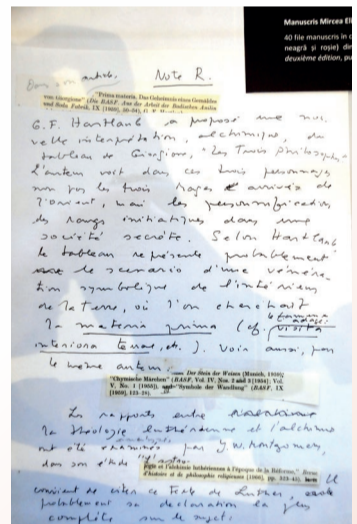 Manuscris Mircea Eli
40 file manuscris în c
neagră și roșie) din
deuxième édition, pu
Dans son article. Note R.
"Prima materia. Das Geheimnis eines Gemäldes
von Giorgione" (Die BASF. Aus der Arbeit der Badischen Anilin
und Soda Fabrik, IX [1959], 50-54), G. F.
G. F. Hartlaub a proposé une nou-
velle interprétation, alchimique, du
tableau de Giorgione, "Les Trois Philosophes".
L'auteur voit dans ces trois personnages
non pas les trois mages arrivés de
l'Orient, mais les personnification
des rangs initiatiques dans une
société secrète. Selon Hartlaub
le tableau représente probablement
le scenario d'une vénéra-
tion symbolique de l'intérieur
de la terre, où l'on cherchait
la materia prima (cf. visita
interiora terrae, etc.). Voir aussi, par
le même auteur
Der Stein der Weisen (Munich, 1959);
"Chymische Märchen" (BASF, Vol. IV, Nos. 2 and 3 [1954]; Vol.
V, No. 1 [1955]), "Symbole der Wandlung" (BASF, IX
[1959], 123-28).
Les rapports entre
la théologie luthérienne et l'alchimie
ont été examinés par J. W. Montgomery,
dans son étude
logie et l'alchimie luthérienne à l'époque de la Réforme," Revue
d'histoire et de philosophie religieuses [1966], pp. 323-45). Il
convient de citer ce texte de Luther,
probablement sa déclaration la plus
complète sur le sujet: